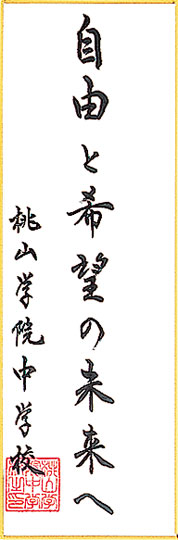 自由と希望の未来へ
桃山学院中学校